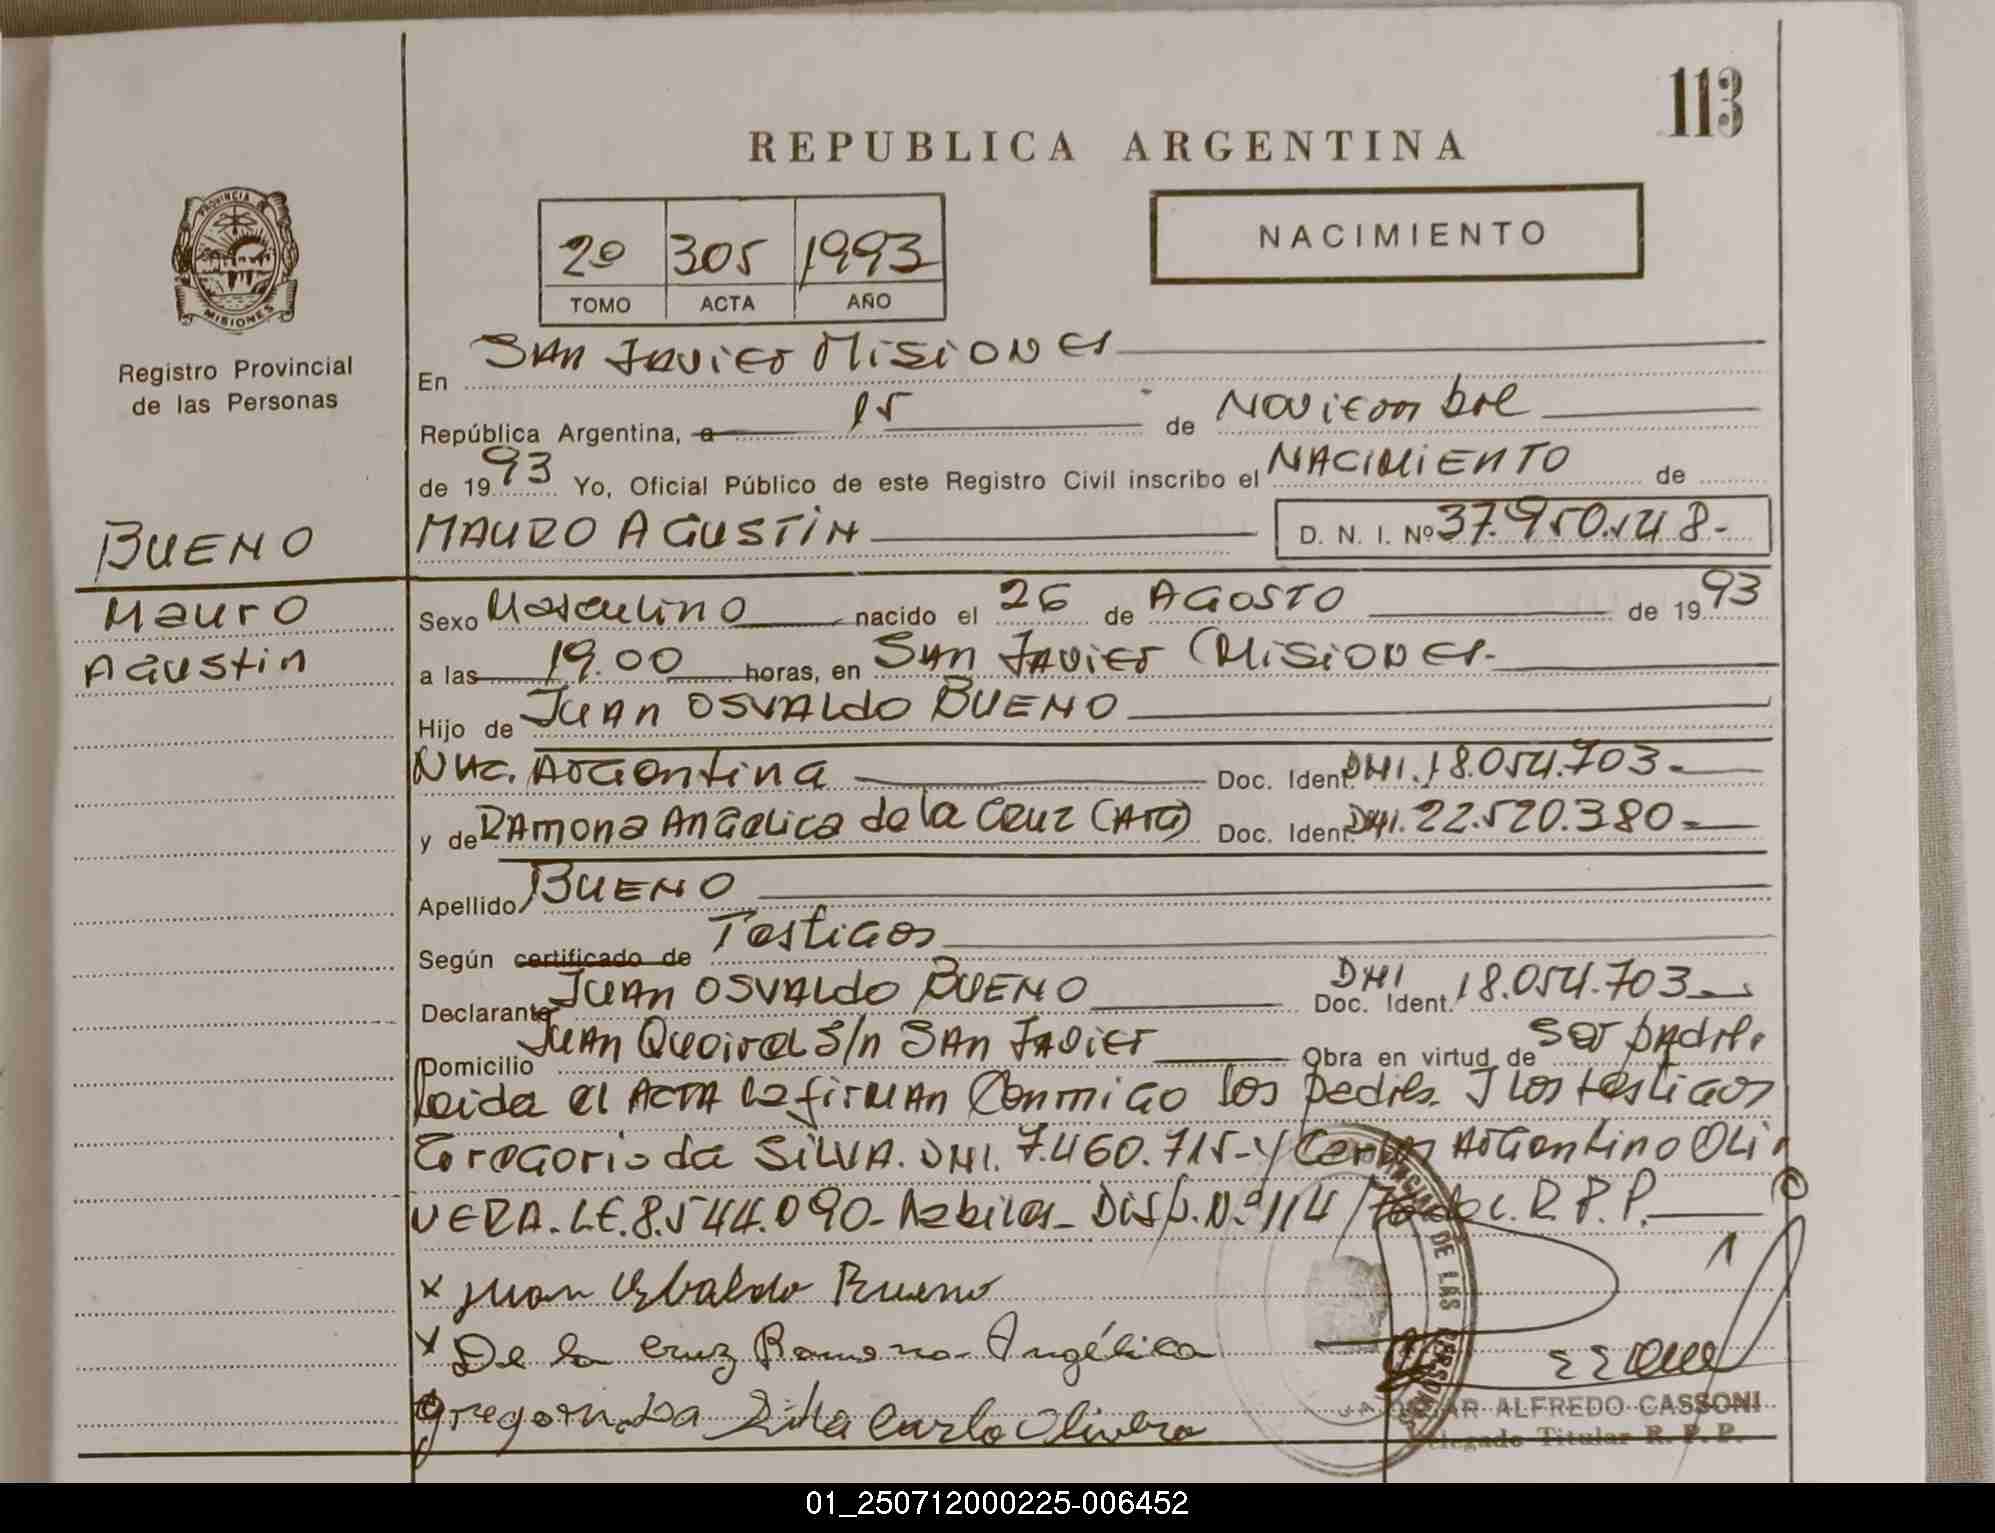 113
REPUBLICA ARGENTINA
PROVINCIA DE
MISIONES
2º 305 1993
TOMO ACTA AÑO
NACIMIENTO
Registro Provincial
de las Personas
En SAN JAVIER MISIONES
República Argentina, a 15 de NOVIEMBRE
de 1993 Yo, Oficial Público de este Registro Civil inscribo el NACIMIENTO de
BUENO
MAURO AGUSTIN D. N. I. Nº 37.950.148.-
Mauro
Agustin
Sexo Masculino nacido el 26 de AGOSTO de 1993
a las 19.00 horas, en SAN JAVIER MISIONES.-
Hijo de JUAN OSVALDO BUENO
Nac. Argentina Doc. Ident. DNI. 18.054.703.-
y de RAMONA ANGELICA de la CRUZ (ARG) Doc. Ident. DNI. 22.520.380.-
Apellido BUENO
Según certificado de Testigos
Declarante JUAN OSVALDO BUENO DNI Doc. Ident. 18.054.703.-
Domicilio Juan Queirel S/n SAN JAVIER Obra en virtud de ser padre.
Leida el ACTA la firman Conmigo los padres. Y los testigos
Gregorio da SILVA. DNI. 7.460.715-Y Carlos Argentino OLI
VERA. LE. 8.544.090- habiles- Disp. Nº 114 R.P.P.
x Juan Osbaldo Bueno
x De la Cruz Ramona Angélica
gregorio da Silva Carlo Olivera
DE LAS PERSONAS
ALFREDO CASSONI
Delegado Titular R. P. P.
01_250712000225-006452